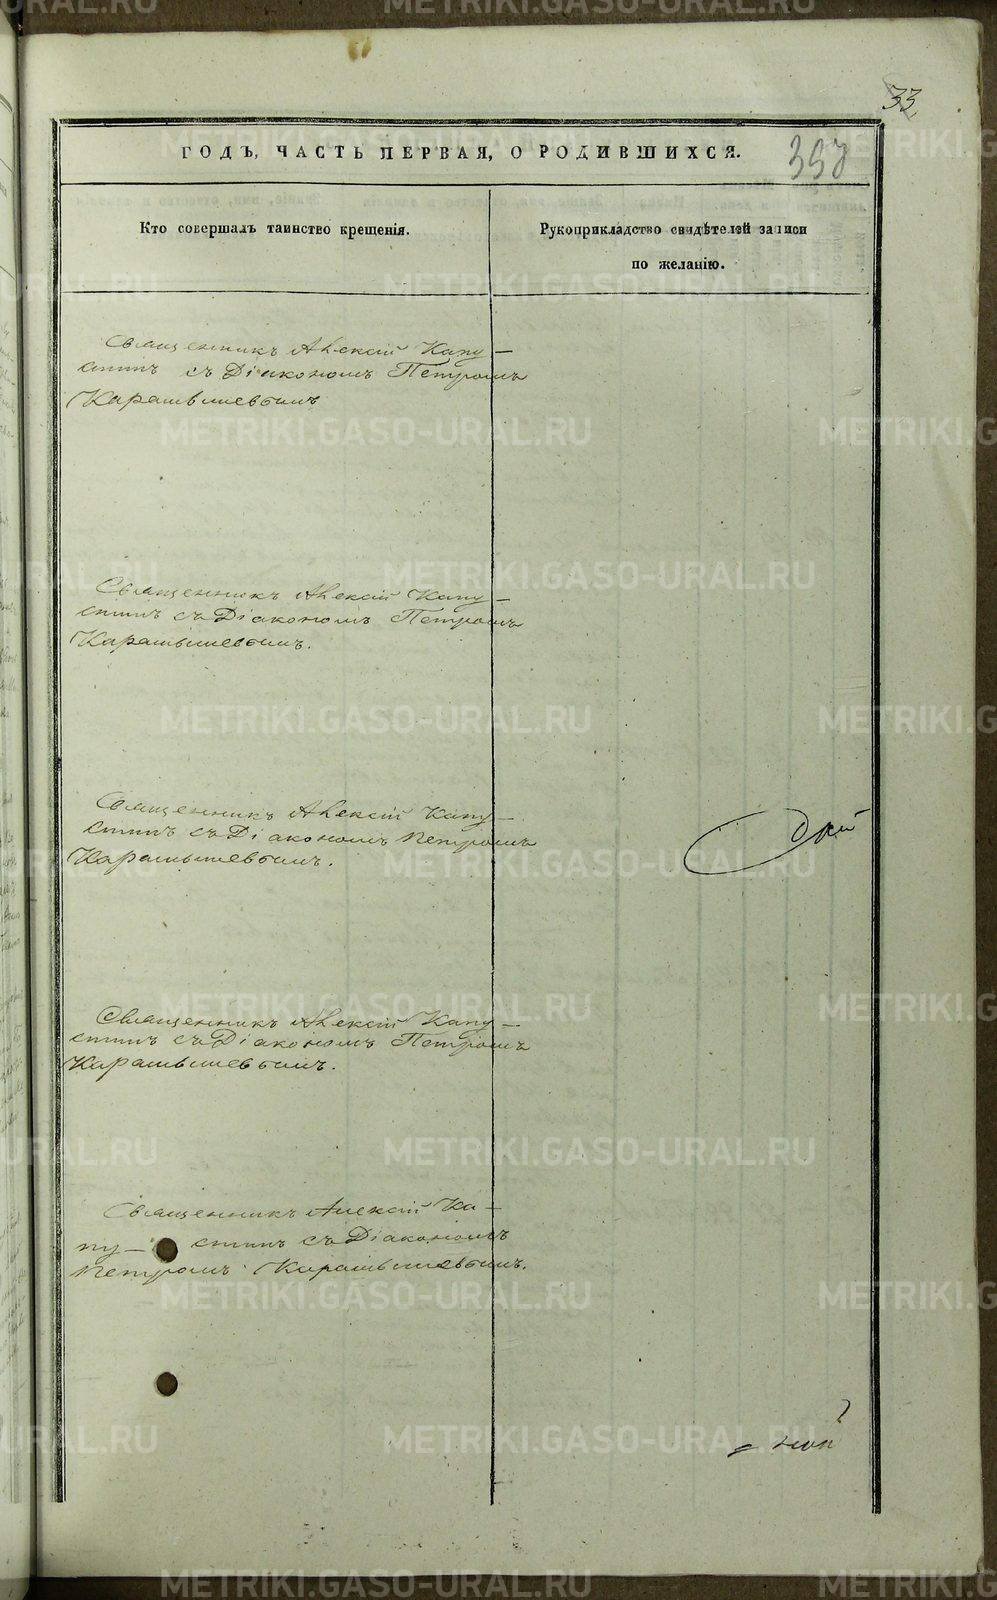 33
ГОДЪ, ЧАСТЬ ПЕРВАЯ, О РОДИВШИХСЯ.
Кто совершалъ таинство крещенія.
Рукоприкладство свидѣтелей записи
по желанію.
Священникъ Алексій Капу-
стинъ съ Діакономъ Петромъ
Карамышевымъ
Священникъ Алексій Капу-
стинъ съ Діакономъ Петромъ
Карамышевымъ.
Священникъ Алексій Капу-
стинъ съ Діакономъ Петромъ
Карамышевымъ.
Священникъ Алексій Капу-
стинъ съ Діакономъ Петромъ
Карамышевымъ.
Священникъ Алексій Ка-
пу- стинъ съ Діакономъ
Петромъ Карамышевымъ.
METRIKI.GASO-URAL.RU